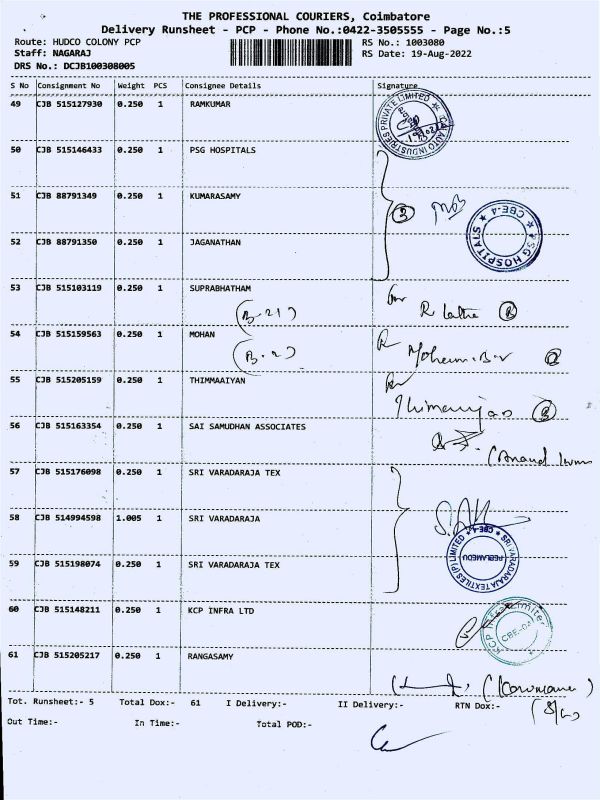 THE PROFESSIONAL COURIERS, Coimbatore
Delivery Runsheet - PCP - Phone No.:0422-3505555 - Page No.:5
Route: HUDCO COLONY PCP RS No.: 1003080
Staff: NAGARAJ RS Date: 19-Aug-2022
DRS No.: DCJB100308005
S No Consignment No Weight PCS Consignee Details Signature
49 CJB 515127930 0.250 1 RAMKUMAR
AUTO INDUSTRIES PRIVATE LIMITED
50 CJB 515146433 0.250 1 PSG HOSPITALS
51 CJB 88791349 0.250 1 KUMARASAMY
3
PSG HOSPITALS ★ CBE-4 ★
52 CJB 88791350 0.250 1 JAGANATHAN
53 CJB 515103119 0.250 1 SUPRABHATHAM
(B-21) R Latha
54 CJB 515159563 0.250 1 MOHAN
(B-2) Mohan.B.V
55 CJB 515205159 0.250 1 THIMMAAIYAN
56 CJB 515163354 0.250 1 SAI SAMUDHAN ASSOCIATES
(Anand
57 CJB 515176098 0.250 1 SRI VARADARAJA TEX
58 CJB 514994598 1.005 1 SRI VARADARAJA
SRI VARADARAJA TEXTILES (P) LIMITED ★ CBE-4 ★
PEELAMEDU
59 CJB 515198074 0.250 1 SRI VARADARAJA TEX
60 CJB 515148211 0.250 1 KCP INFRA LTD
KCP Infra Limited
CBE-04
61 CJB 515205217 0.250 1 RANGASAMY
(S/o)
Tot. Runsheet:- 5 Total Dox:- 61 I Delivery:- II Delivery:- RTN Dox:-
Out Time:- In Time:- Total POD:-